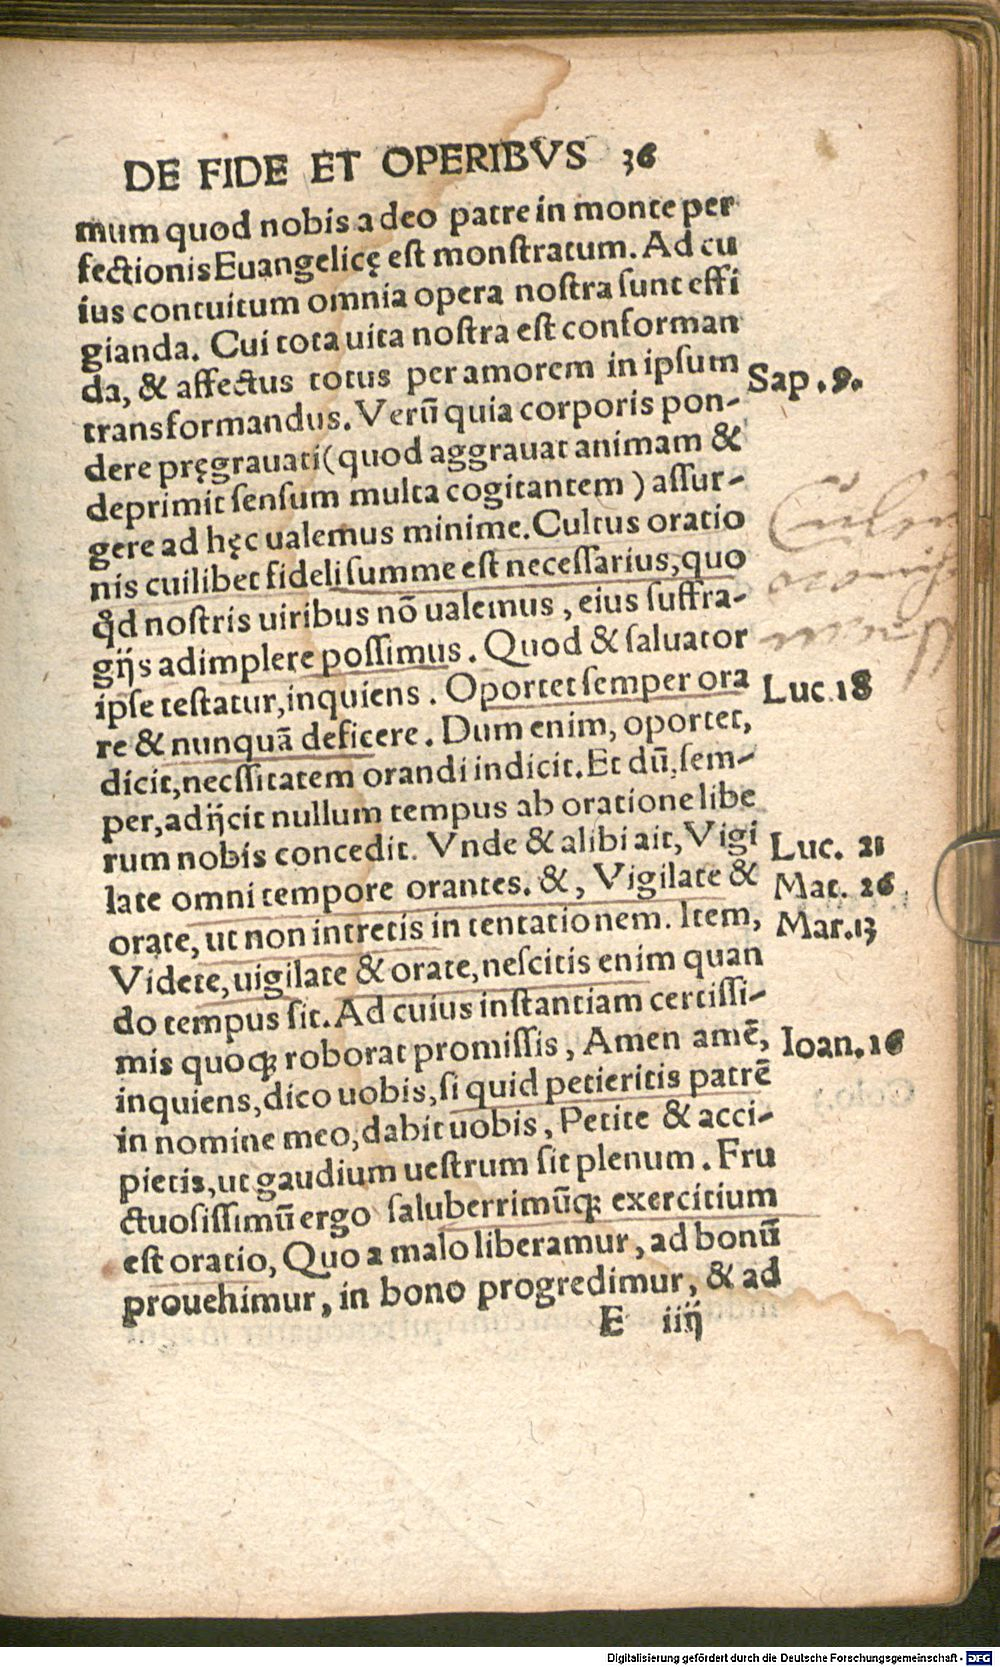 DE FIDE ET OPERIBVS 36
mum quod nobis a deo patre in monte per
fectionis Euangelicę est monstratum. Ad cu
ius contuitum omnia opera nostra sunt effi
gianda. Cui tota uita nostra est conforman
da, & affectus totus per amorem in ipsum
Sap. 9.
transformandus. Verū quia corporis pon-
dere pręgrauati (quod aggrauat animam &
deprimit sensum multa cogitantem) assur-
gere ad hęc ualemus minime. Cultus oratio
nis cuilibet fideli summe est necessarius, quo
qd nostris uiribus nō ualemus, eius suffra-
gijs adimplere possimus. Quod & saluator
ipse testatur, inquiens. Oportet semper ora
Luc. 18
re & nunquā deficere. Dum enim, oportet,
dicit, necssitatem orandi indicit. Et dū, sem-
per, adijcit nullum tempus ab oratione libe
rum nobis concedit. Vnde & alibi ait, Vigi
Luc. 21
late omni tempore orantes. &, Vigilate &
Mat. 26
orate, ut non intretis in tentationem. Item,
Mar. 13
Videte, uigilate & orate, nescitis enim quan
do tempus sit. Ad cuius instantiam certissi-
mis quoqꝫ roborat promissis, Amen amē,
Ioan. 16
inquiens, dico uobis, si quid petieritis patrē
in nomine meo, dabit uobis, Petite & acci-
pietis, ut gaudium uestrum sit plenum. Fru
ctuosissimū ergo saluberrimūqꝫ exercitium
est oratio, Quo a malo liberamur, ad bonū
prouehimur, in bono progredimur, & ad
E iiij
Digitalisierung gefördert durch die Deutsche Forschungsgemeinschaft - DFG